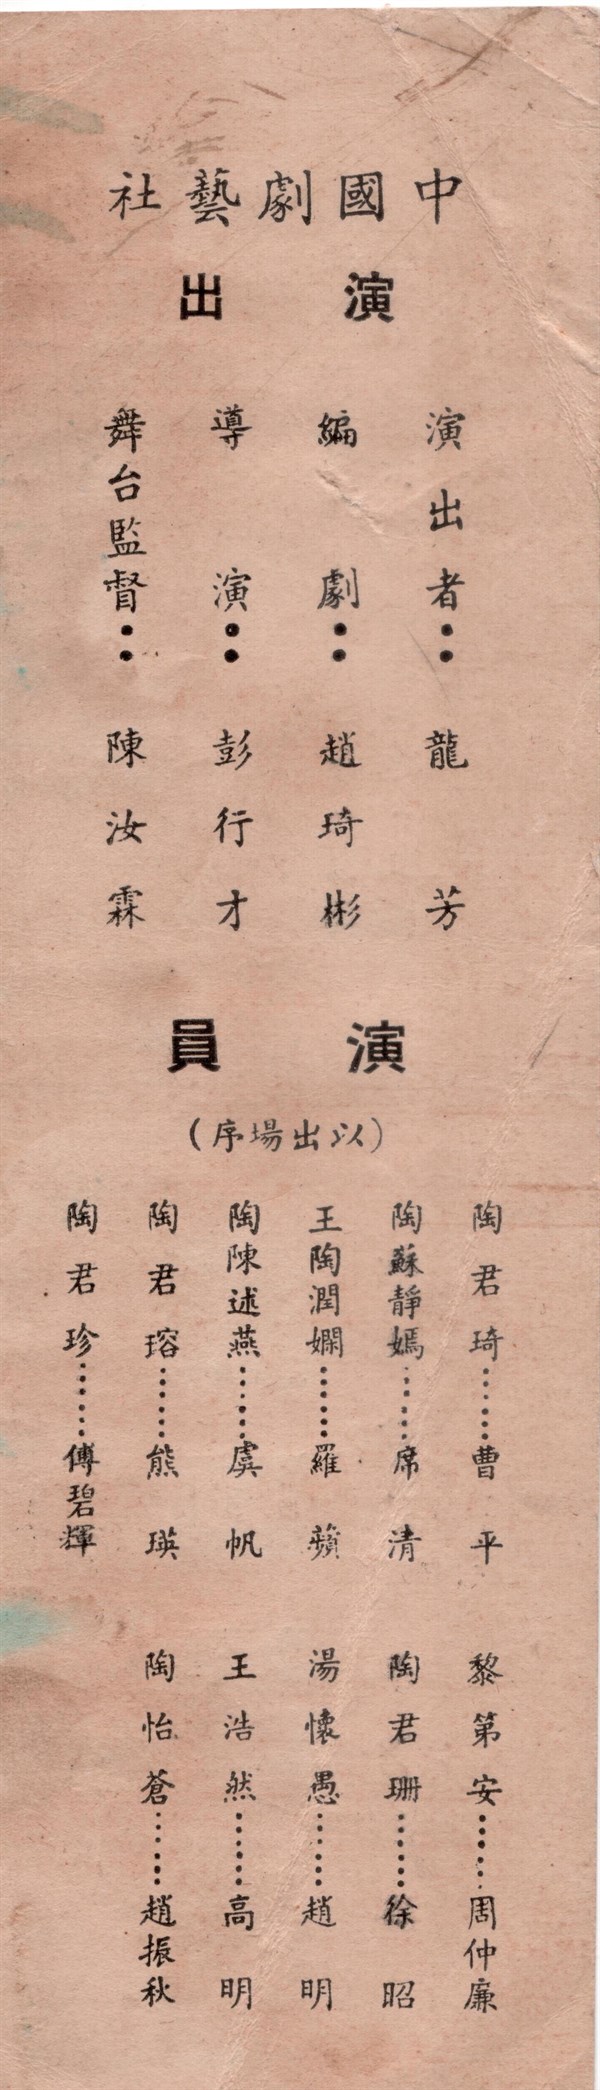 中國劇藝社
演出
演出者：龍芳
編劇：趙琦彬
導演：彭行才
舞台監督：陳汝霖
演員
(以出場序)
陶君琦……曹平
陶蘇靜嫣……席清
王陶潤嫻……羅蘋
陶陳述燕……虞帆
陶君瑢……熊瑛
陶君珍……傅碧輝
黎第安……周仲廉
陶君珊……徐昭
湯懷愚……趙明
王浩然……高明
陶怡蒼……趙振秋